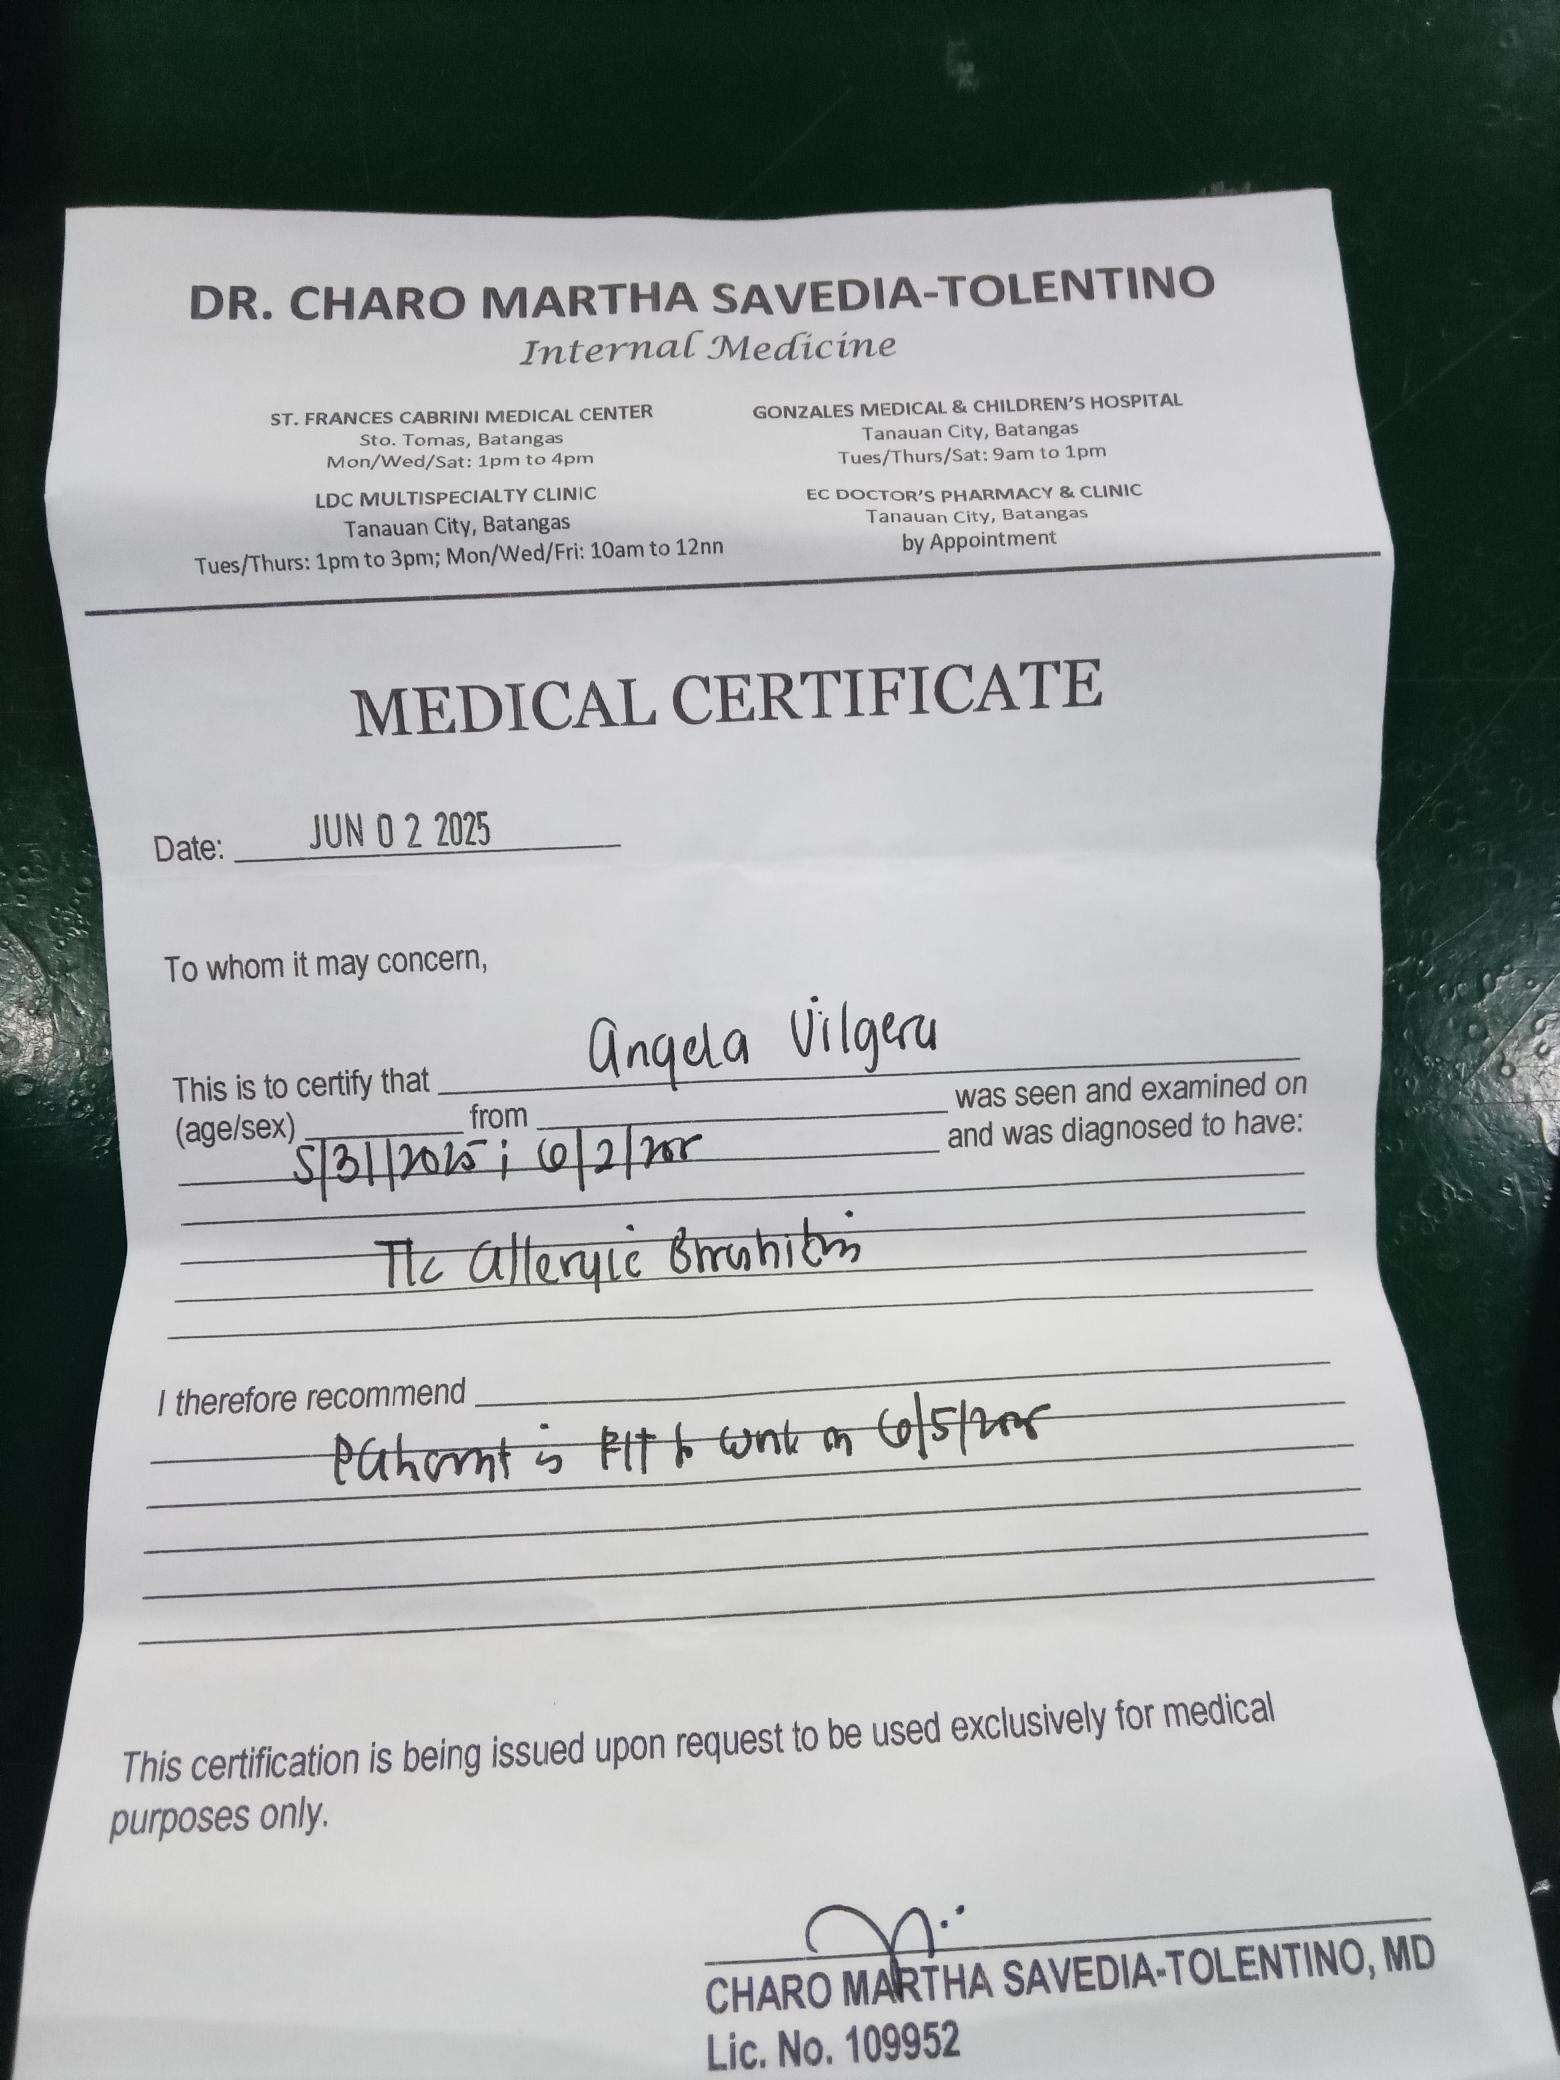 DR. CHARO MARTHA SAVEDIA-TOLENTINO
Internal Medicine
ST. FRANCES CABRINI MEDICAL CENTER
Sto. Tomas, Batangas
Mon/Wed/Sat: 1pm to 4pm
GONZALES MEDICAL & CHILDREN'S HOSPITAL
Tanauan City, Batangas
Tues/Thurs/Sat: 9am to 1pm
LDC MULTISPECIALTY CLINIC
Tanauan City, Batangas
Tues/Thurs: 1pm to 3pm; Mon/Wed/Fri: 10am to 12nn
EC DOCTOR'S PHARMACY & CLINIC
Tanauan City, Batangas
by Appointment
MEDICAL CERTIFICATE
Date: JUN 02 2025
To whom it may concern,
This is to certify that Angela Vilgera
(age/sex) from was seen and examined on
5/31/2025 ; 6/2/2025 and was diagnosed to have:
Allergic Bronchitis
I therefore recommend
Patient is FIT to work on 6/5/2025
This certification is being issued upon request to be used exclusively for medical
purposes only.
CHARO MARTHA SAVEDIA-TOLENTINO, MD
Lic. No. 109952